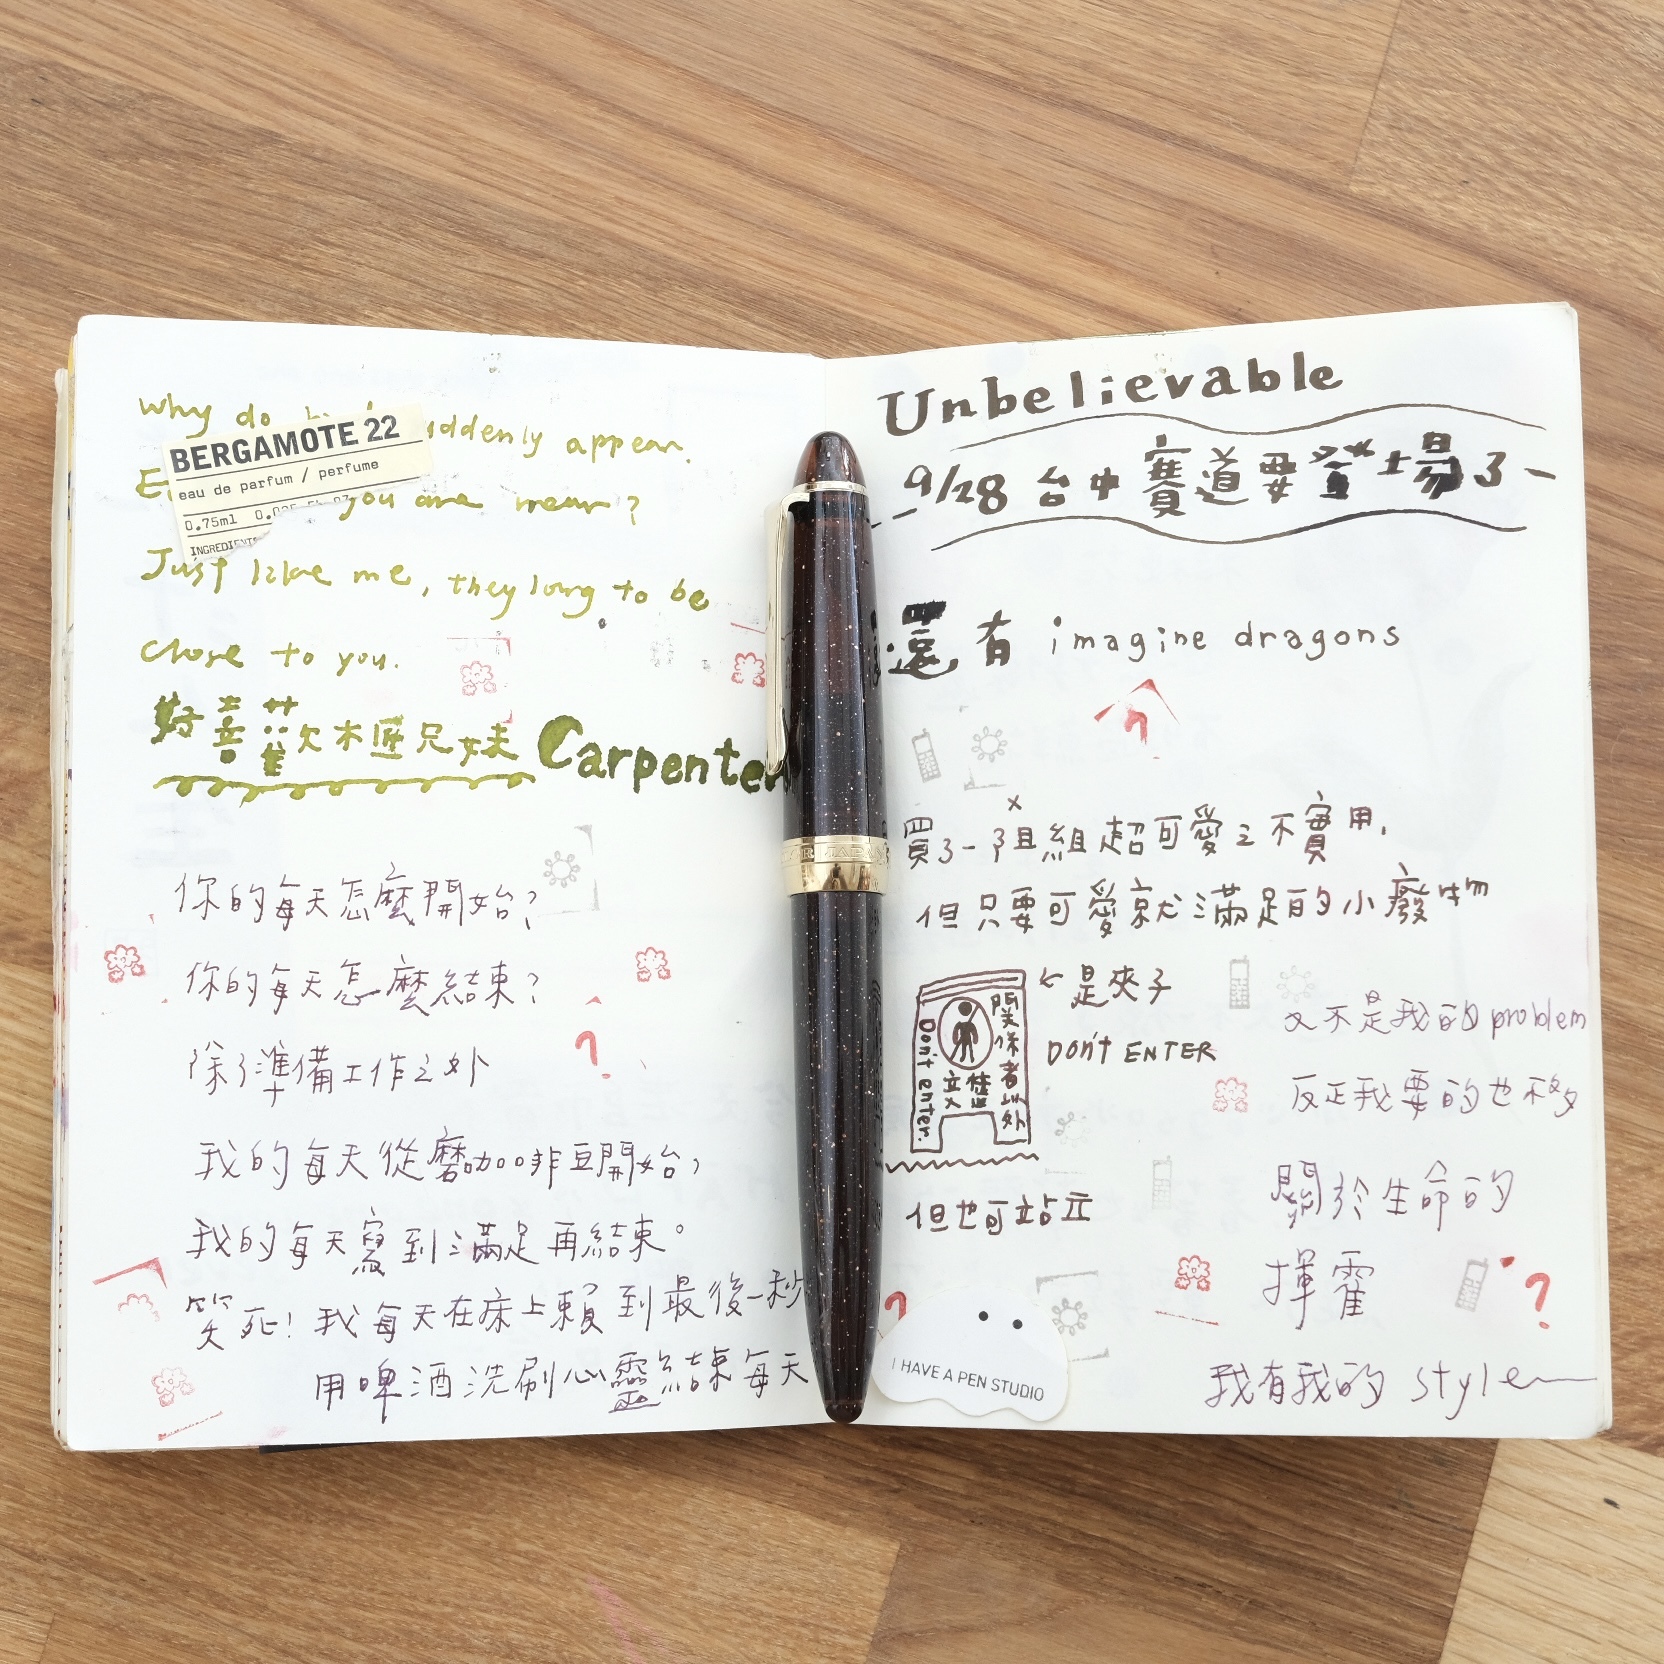 Why do suddenly appear.
BERGAMOTE 22
eau de parfum / perfume
0.75ml
INGREDIENTS
you are near?
Just like me, they long to be
close to you.
好喜歡木匠兄妹 Carpenter
你的每天怎麼開始?
你的每天怎麼結束?
除了準備工作之外
我的每天從磨咖啡豆開始,
我的每天寫到滿足再結束。
笑死!我每天在床上賴到最後一秒
用啤酒洗刷心靈結束每天
Unbelievable
9/28 台中賽道要登場了
還有 imagine dragons
買了一阻組超可愛之不實用,
但只要可愛就滿足的小廢物
是夾子
DON'T ENTER
関係者以外
立入禁止
Don't enter.
但也可站立
又不是我的problem
反正我要的也不多
關於生命的
揮霍
我有我的 style
I HAVE A PEN STUDIO
JAPAN